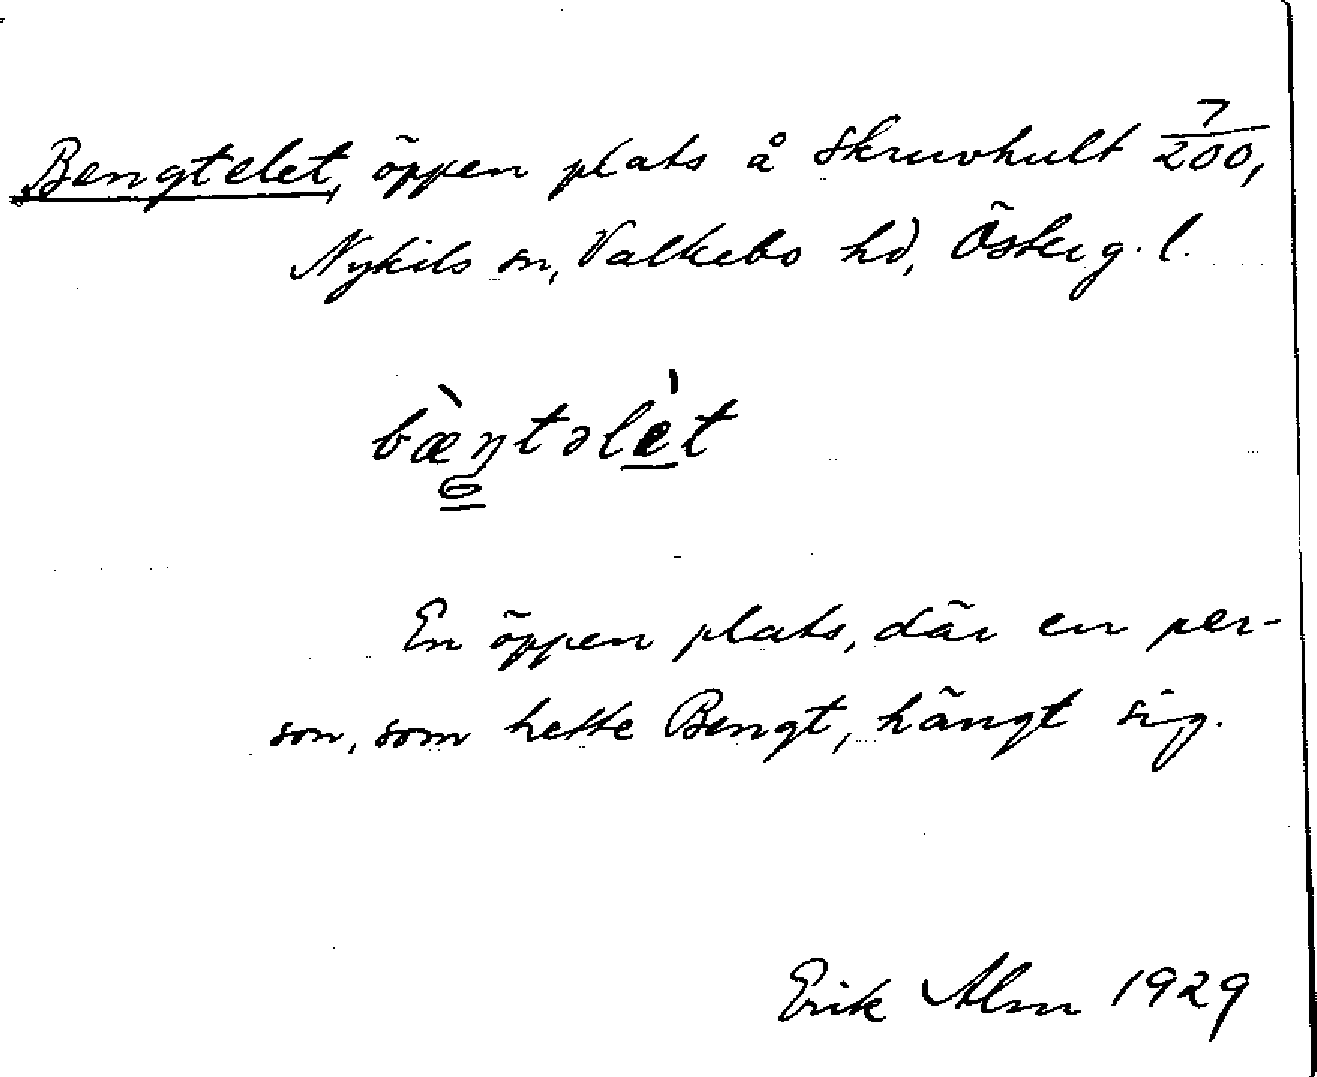 Bengtelet, öppen plats å Skruvhult 7/200,
Nykils sn, Valkebo hd, Österg. l.
bæ̀ŋtəlèt
En öppen plats, där en per-
son, som hette Bengt, hängt sig.
Erik Alm 1929